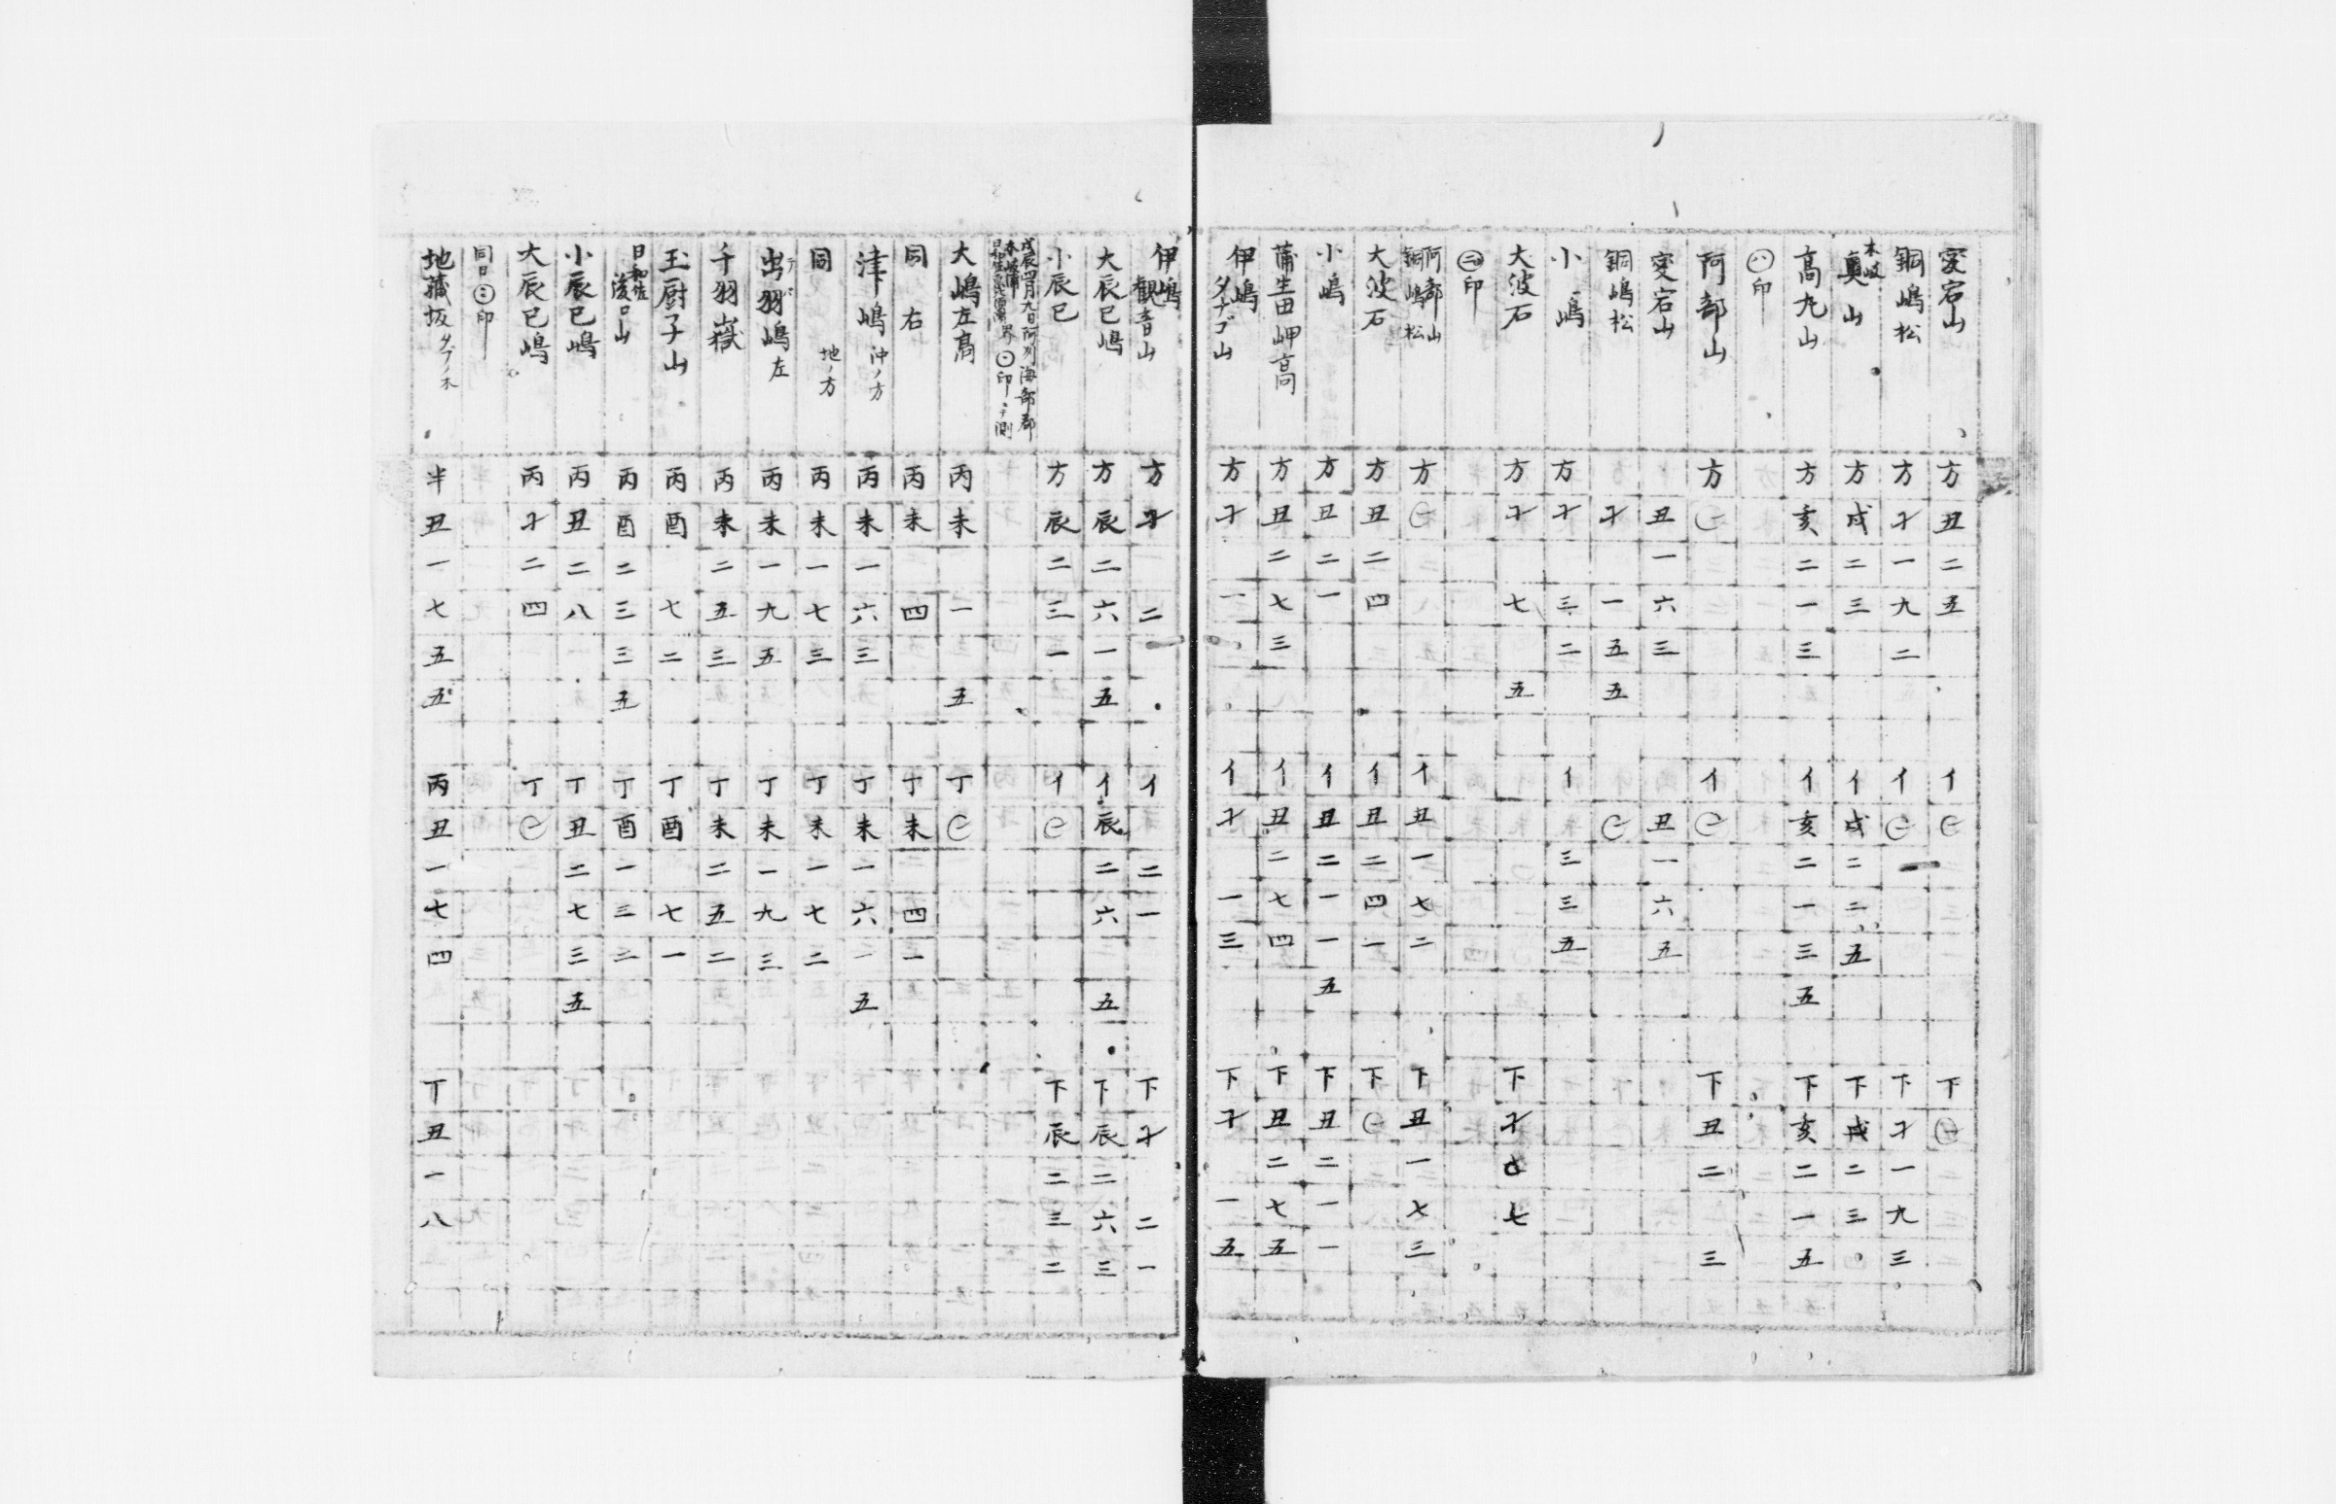 愛宕山 方丑二五 イ㊀ 下㊀
銅嶋松 方子一九二 イ㊀ 下子一九三
木岐奥山 方戌二三 イ戌二二五 下戌二三
高丸山 方亥二一三 イ亥二一三五 下亥二一五
㋩印
阿部山 方㊀ イ㊀ 下丑二三
愛宕山 丑一六三 丑一六五
銅嶋松 子一五五 ㊀
小嶋 方子三二 イ三三五
大波石 方子七五 下子七
㊁印
阿部山銅嶋松 方㊀ イ丑一七二 下丑一七三
大波石 方丑二四 イ丑二四一 下㊀
小嶋 方丑二一 イ丑二一一五 下丑二一一
蒲生田岬高 方丑二七三 イ丑二七四 下丑二七五
伊嶋タナゴ山 方子一 イ子一三 下子一五
伊嶋観音山 方子二 イ二一 下子二一
大辰巳嶋 方辰二六一五 イ辰二六五 下辰二六三
小辰巳 方辰二三一 イ㊀ 下辰二三二
戊辰四月九日阿州海部郡
木岐浦日和佐 界 印ニテ測
大嶋左高 丙未一五 丁㊀
同右 丙未四 丁未四一
津嶋沖ノ方 丙未一六三 丁未一六一五
同地ノ方 丙未一七三 丁未一七二
出羽嶋左 テバ 丙未一九五 丁未一九三
千羽嶽 丙未二五三 丁未二五二
玉厨子山 丙酉七二 丁酉七一
日和佐 口山 丙酉二三三五 丁酉一三二
小辰巳嶋 丙丑二八 丁丑二七三五
大辰巳嶋 丙子二四 丁㊀
同日㊁印
地蔵坂タブノ木 半丑一七五五 丙丑一七四 丁丑一八